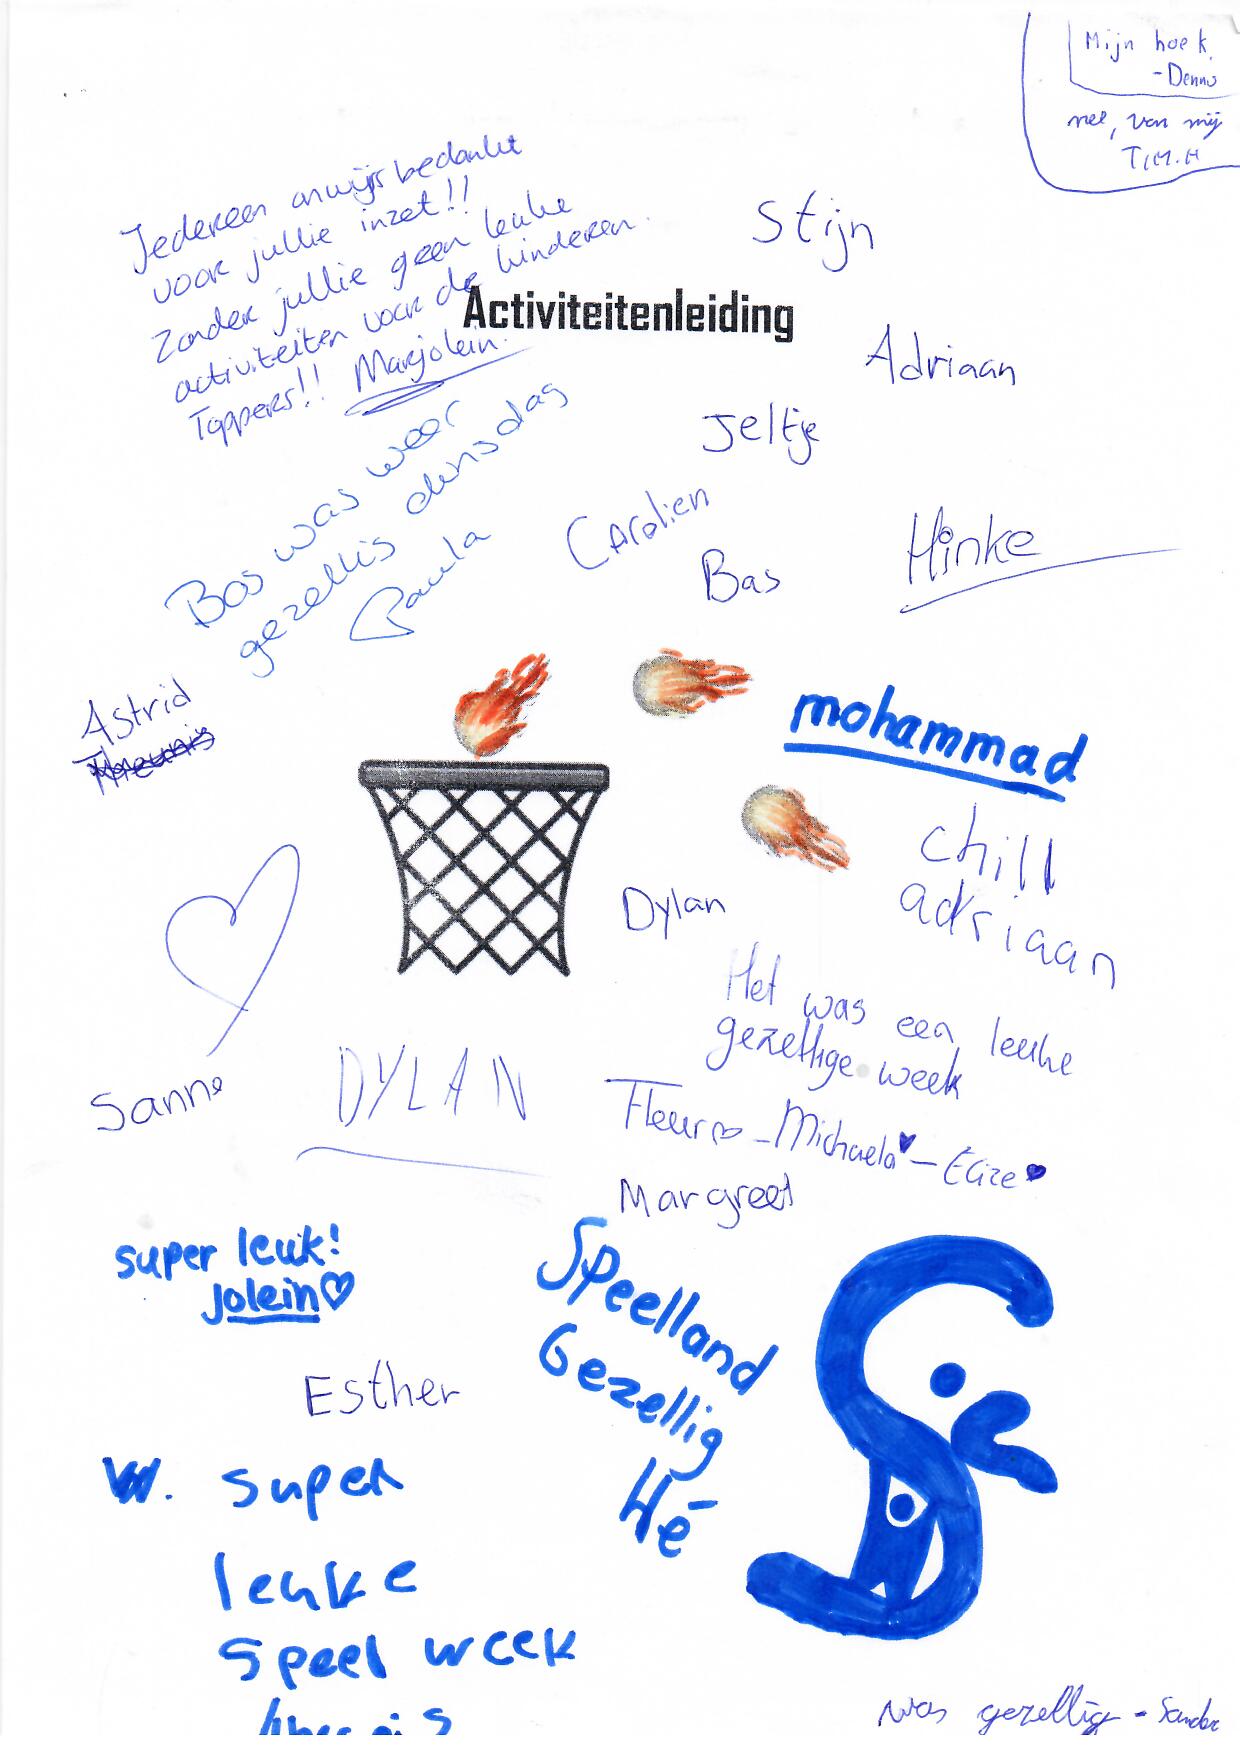 Mijn hoek
nee, van mij
TIM.H
Iedereen onwijs bedankt
voor jullie inzet!!
Zonder jullie geen leuke
activiteiten voor de kinderen.
Toppers!! Marjolein.
Stijn
Activiteitenleiding
Adriaan
Jeltje
Bas was weer
gezellig dinsdag
Paula
Carolien
Bas
Hinke
Astrid
mohammad
chill
adriaan
Dylan
Het was een leuke
gezellige week
Fleur - Michaela -
Sanne
DYLAN
Margreet
super leuk!
jolein
Speelland
Gezellig
Hé
Esther
W. super
leuke
speel week
was gezellig - Sander